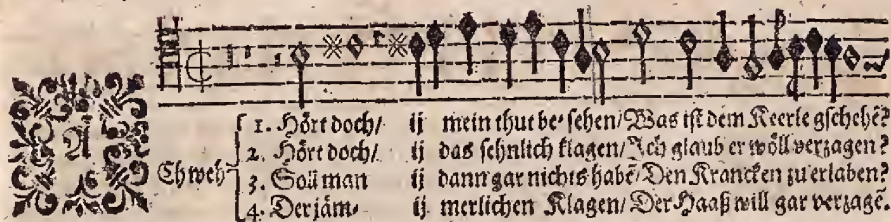 Ach weh
1. Hört doch/ ij mein thut be⸗ sehen/ Was ist dem Keerle gschehẽ?
2. Hört doch/ ij das sehnlich klagen/ Ich glaub er wöll verzagen?
3. Soll man ij dann gar nichts habẽ/ Den Krancken zu erlaben?
4. Der jäm⸗ ij merlichen Klagen/ Der Haaß will gar verzagẽ.